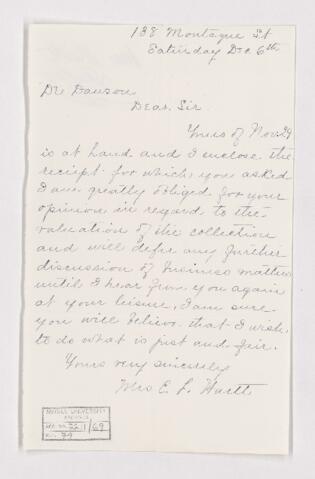 138 Montague St
Saturday Dec 6th
Dr Dawson
Dear Sir
Yours of Nov 29
is at hand and I enclose the
receipt for which you asked
I am greatly obliged for your
opinion in regard to the
valuation of the collection
and will defer any further
discussion of business matters
until I hear from you again
at your leisure, I am sure
you will believe that I wish
to do what is just and fair.
Yours very sincerely
Mrs E. L. Hartt
McGILL UNIVERSITY
ARCHIVES
69